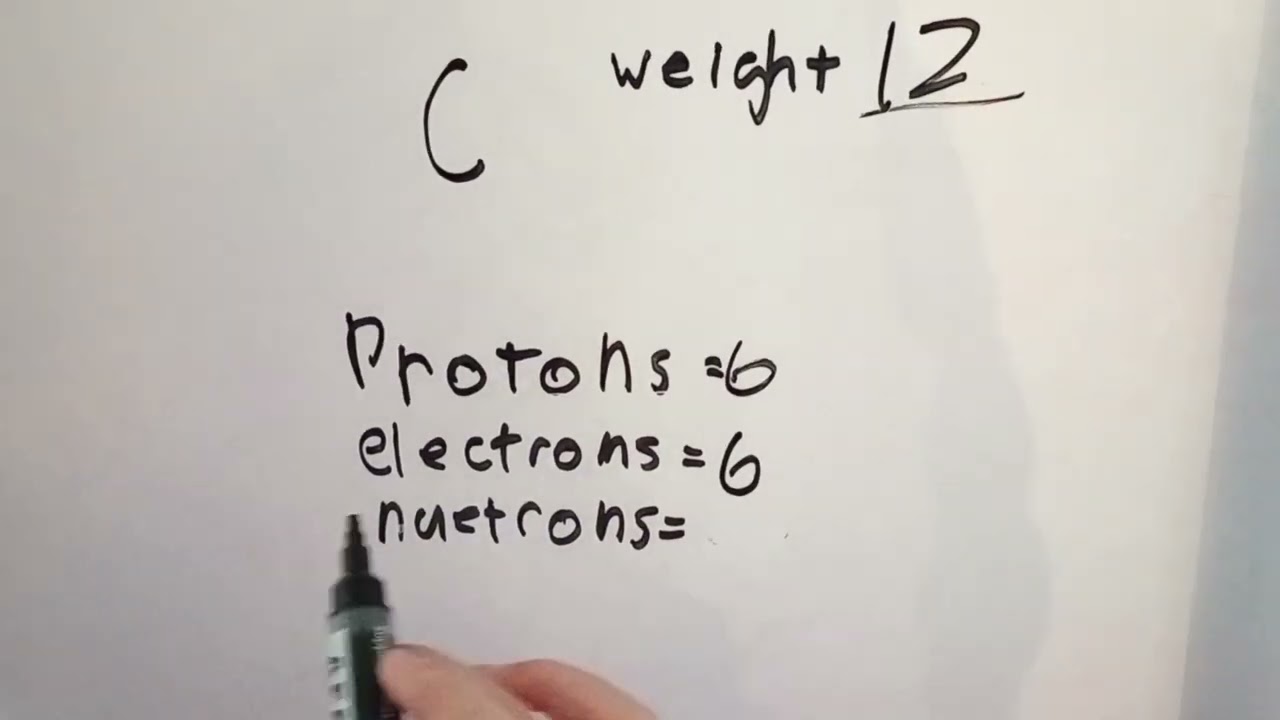 C weight 12
Protons =6
electrons = 6
nuetrons=